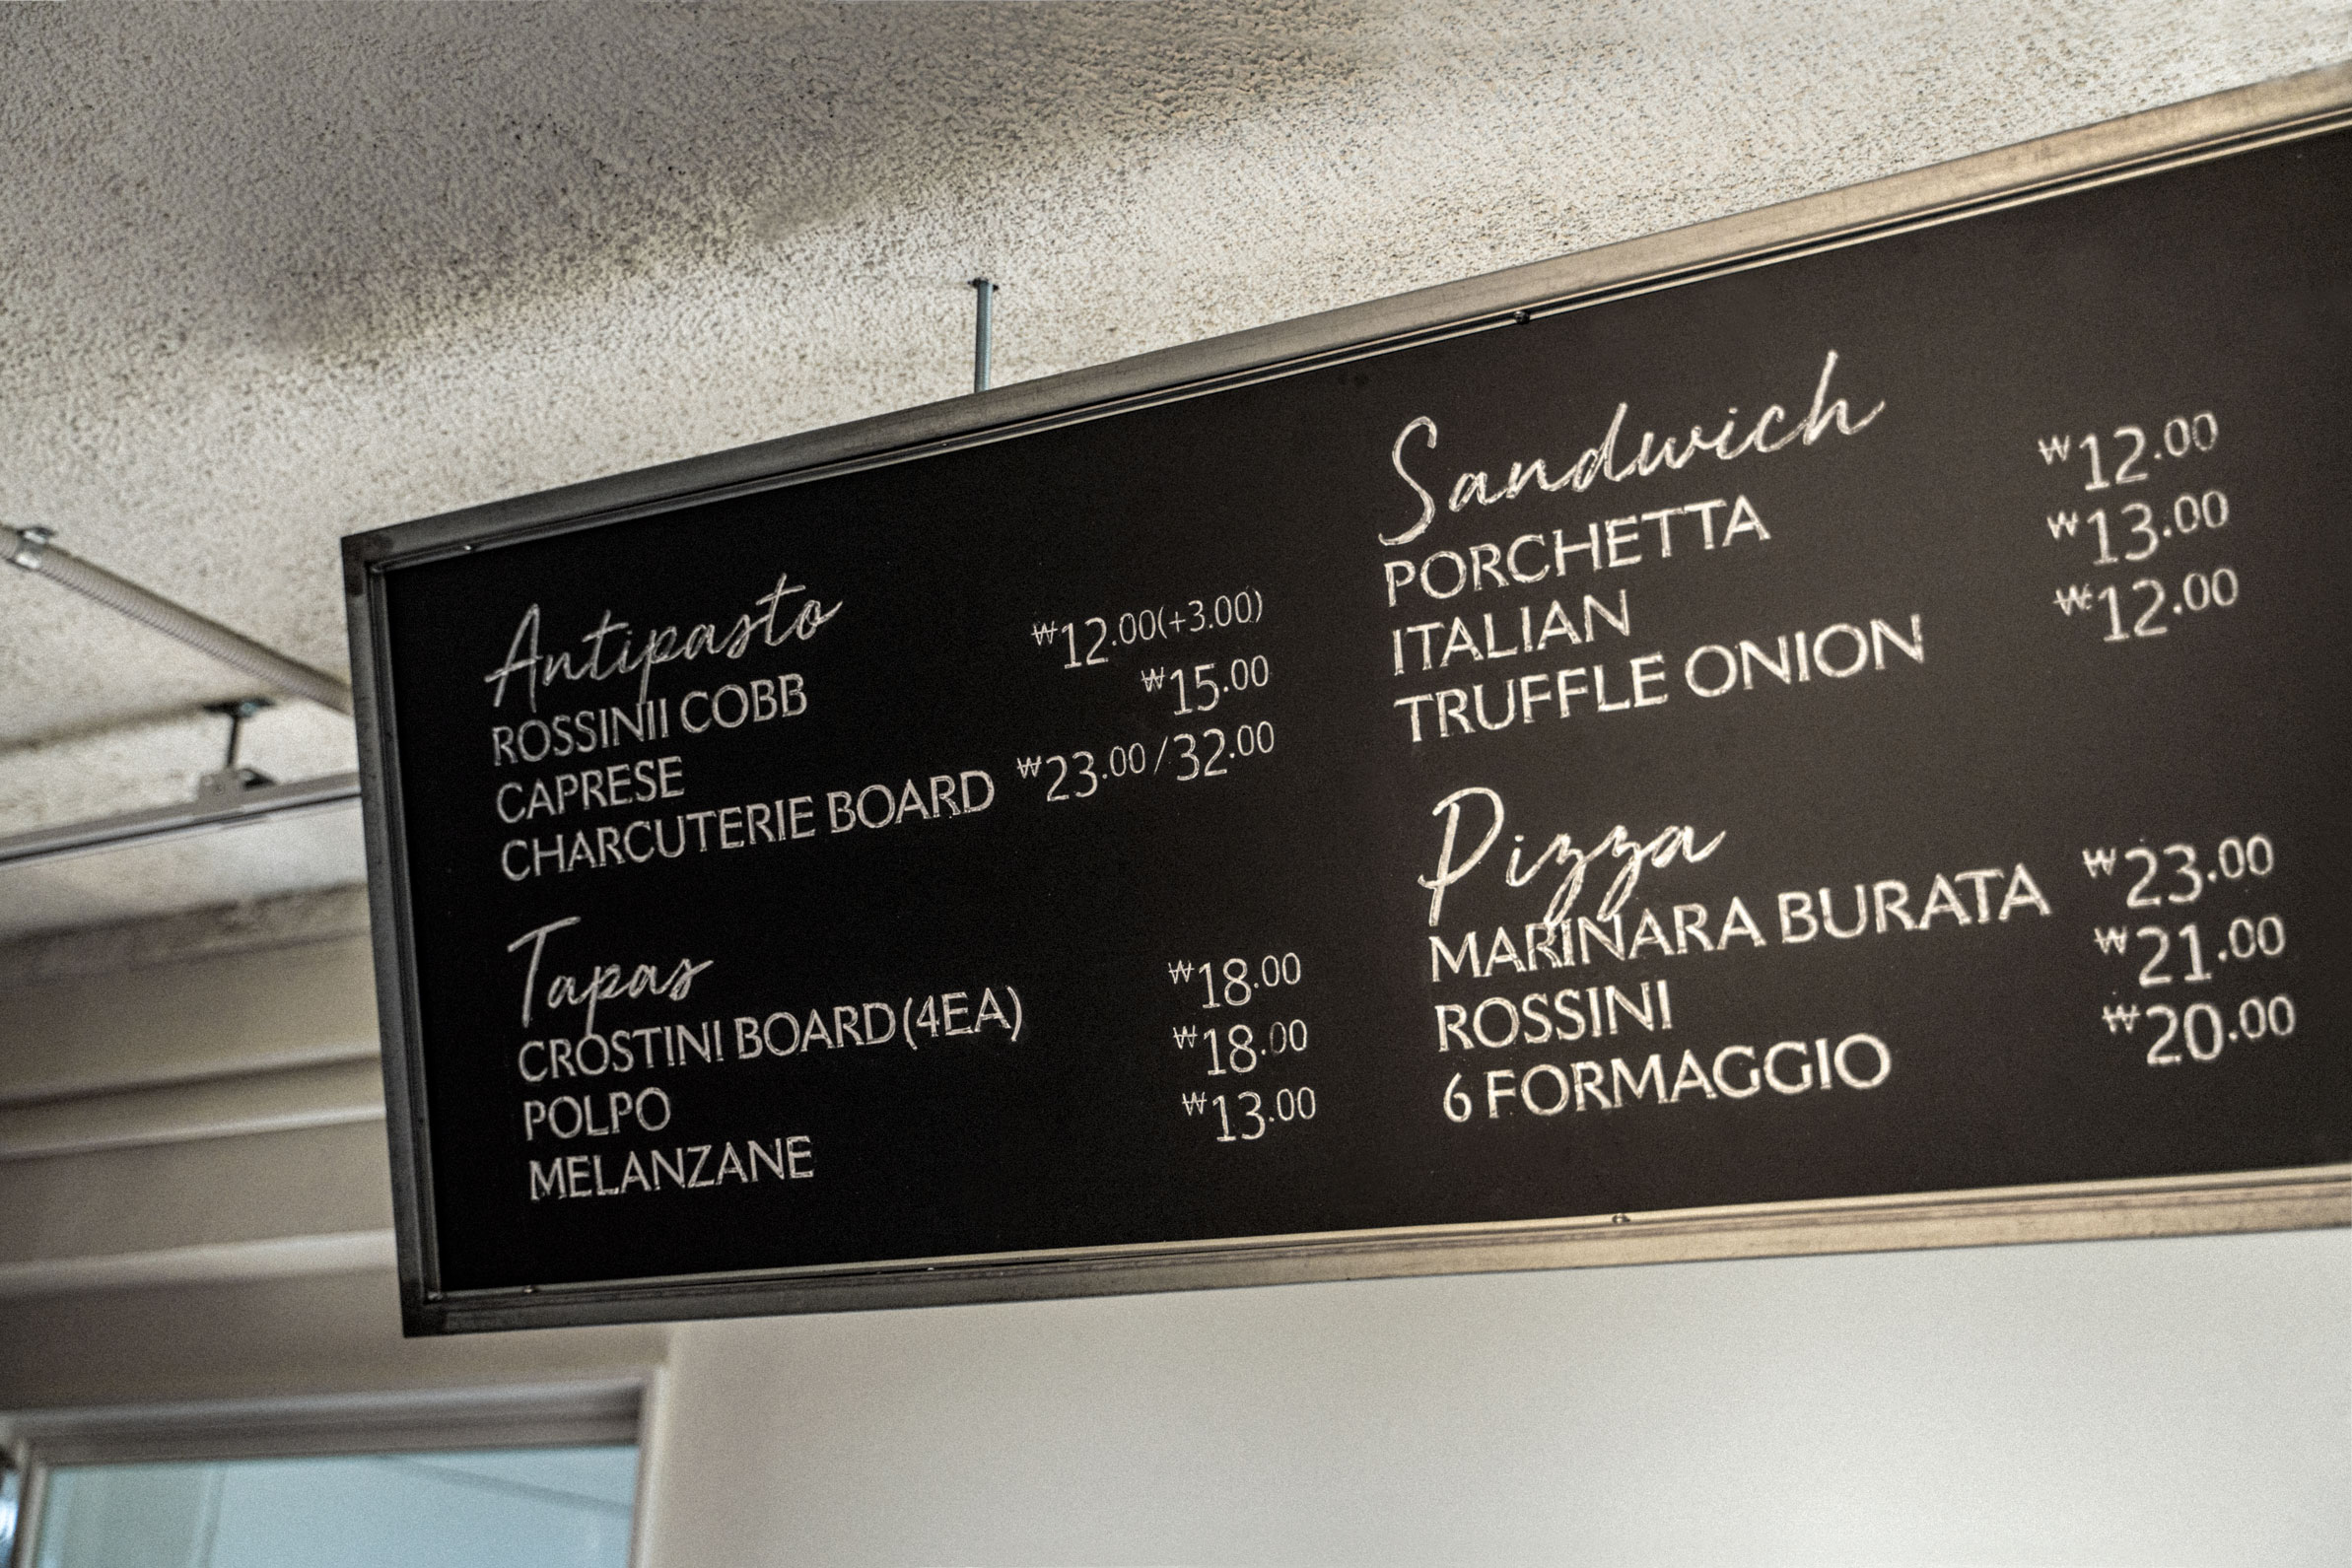 Antipasto
ROSSINII COBB ₩12.00(+3.00)
CAPRESE ₩15.00
CHARCUTERIE BOARD ₩23.00/32.00
Tapas
CROSTINI BOARD(4EA) ₩18.00
POLPO ₩18.00
MELANZANE ₩13.00
Sandwich
PORCHETTA ₩12.00
ITALIAN ₩13.00
TRUFFLE ONION ₩12.00
Pizza
MARINARA BURATA ₩23.00
ROSSINI ₩21.00
6 FORMAGGIO ₩20.00